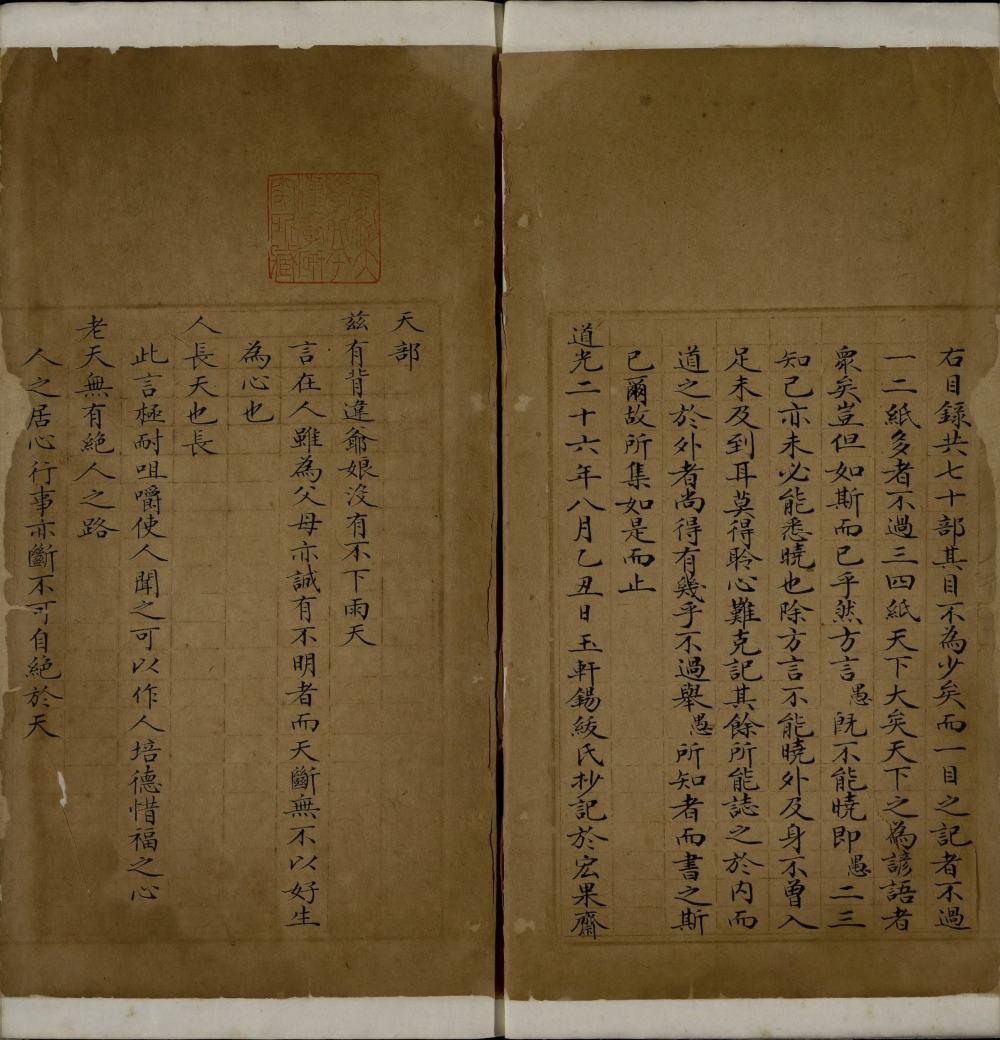 右目録共七十部其目不為少矣而一目之記者不過
一二紙多者不過三四紙天下大矣天下之為諺語者
衆矣豈但如斯而已乎然方言愚既不能曉即愚二三
知已亦未必能悉曉也除方言不能曉外及身不曾入
足未及到耳莫得聆心難克記其餘所能誌之於內而
道之於外者尚得有幾乎不過舉愚所知者而書之斯
已爾故所集如是而止
道光二十六年八月乙丑日玉軒錫綬氏抄記於宏果齋
天部
茲有背違爺娘沒有不下雨天
言在人雖為父母亦誠有不明者而天斷無不以好生
為心也
人長天也長
此言極耐咀嚼使人聞之可以作人培德惜福之心
老天無有絕人之路
人之居心行事亦斷不可自絕於天